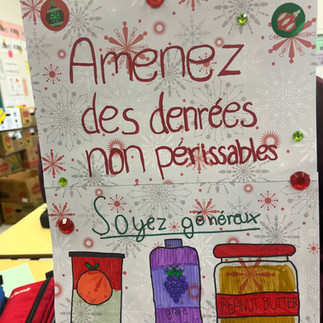 Amenez
des denrées
non périssables
Soyez généreux
grape
PEANUT BUTTER